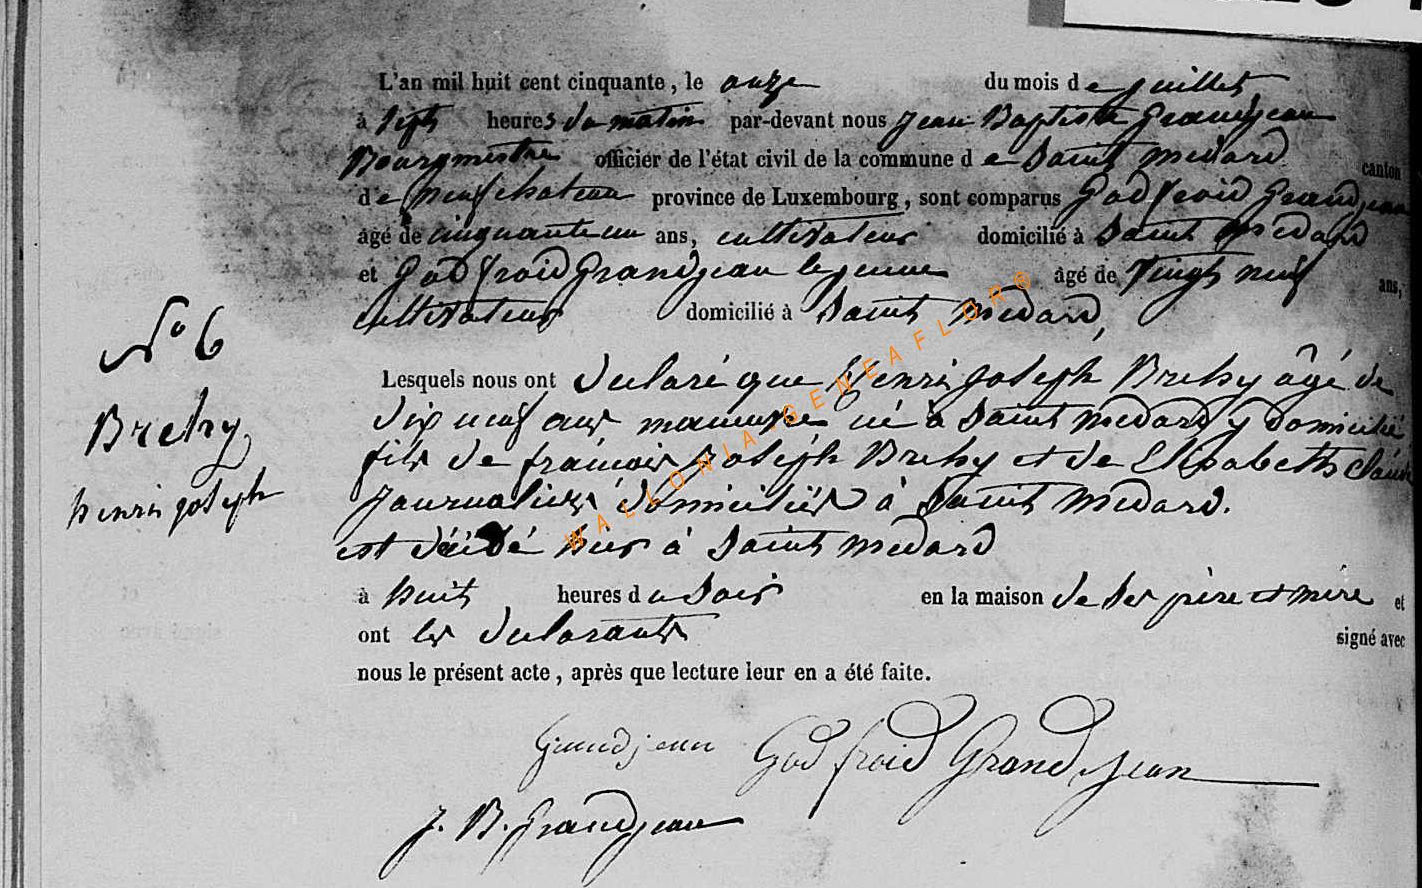 L'an mil huit cent cinquante, le onze du mois de juillet
à sept heures du matin par-devant nous Jean Baptiste Grandjean
Bourgmestre officier de l'état civil de la commune de Saint Medard canton
de Neufchateau province de Luxembourg, sont comparus Godfroid Grandjean
âgé de cinquante un ans, cultivateur domicilié à Saint Medard
et Godfroid Grandjean le jeune âgé de vingt neuf ans,
cultivateur domicilié à Saint Medard,
N° 6
Brehy
henri joseph
Lesquels nous ont declaré que henri joseph Brehy âgé de
dix neuf ans manuvre né à Saint Medard y domicilié
fils de francois joseph Brehy et de Elisabeth
journaliers domiciliés à Saint Medard.
est décédé hier à Saint Medard
à huit heures du soir en la maison de ses père et mère et
ont les declarants signé avec
nous le présent acte, après que lecture leur en a été faite.
Grandjean Godfroid Grandjean
J. B. Grandjean
WALLONIA-GENEAFLOR®